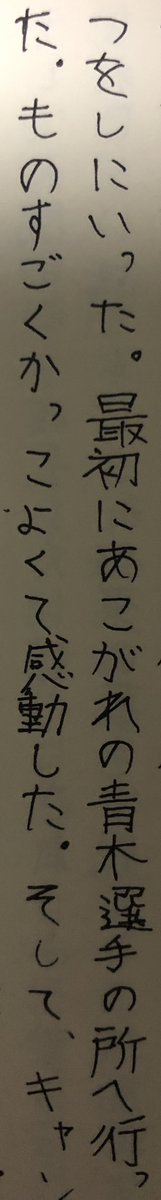 つをしにいった。最初にあこがれの青木選手の所へ行っ
た。ものすごくかっこよくて感動した。そして、キャン